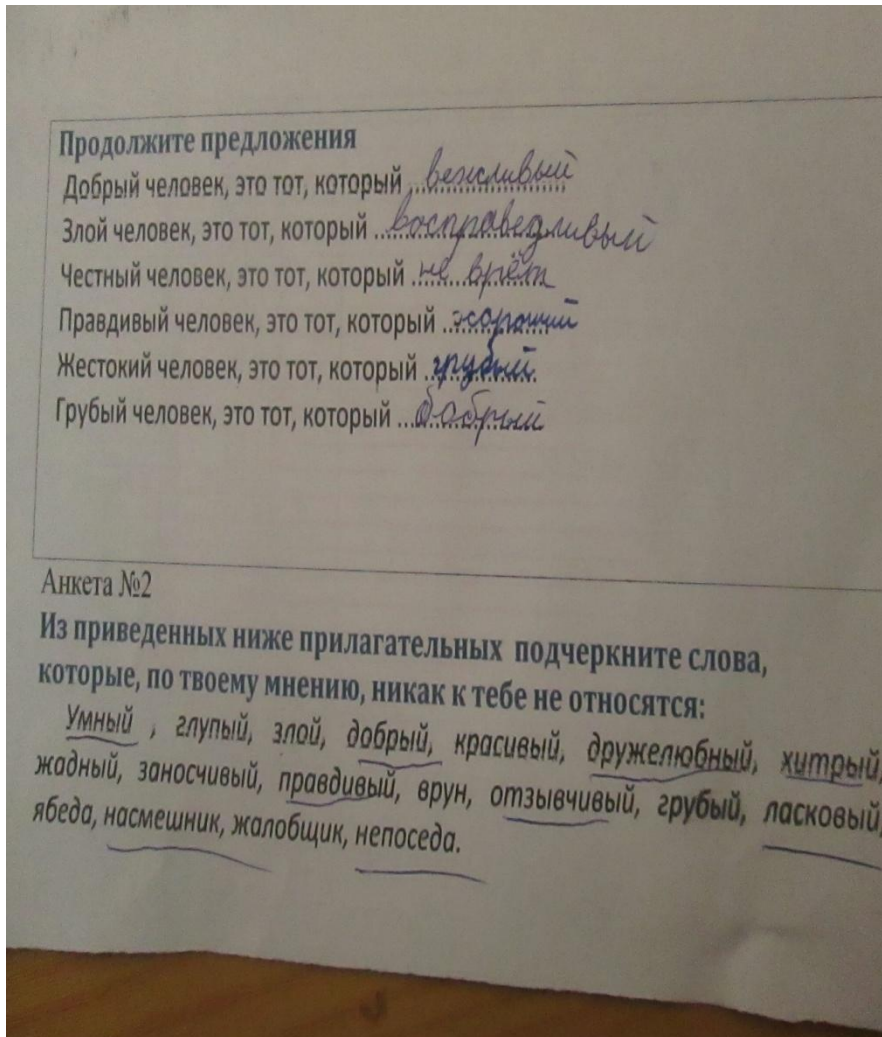 Продолжите предложения
Добрый человек, это тот, который ...вежливый
Злой человек, это тот, который ...восправедливый
Честный человек, это тот, который ...не врёт
Правдивый человек, это тот, который ...хороший
Жестокий человек, это тот, который ...грубый
Грубый человек, это тот, который ...добрый
Анкета №2
Из приведенных ниже прилагательных подчеркните слова,
которые, по твоему мнению, никак к тебе не относятся:
Умный , глупый, злой, добрый, красивый, дружелюбный, хитрый,
жадный, заносчивый, правдивый, врун, отзывчивый, грубый, ласковый,
ябеда, насмешник, жалобщик, непоседа.